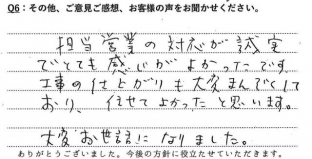 Q6：その他、ご意見ご感想、お客様の声をお聞かせください。
担当営業の対応が誠実
でとても感じがよかったです
工事の仕上がりも大変まんぞくして
おり、任せてよかったと思います。
大変お世話になりました。
ありがとうございました。今後の方針に役立たせていただきます。